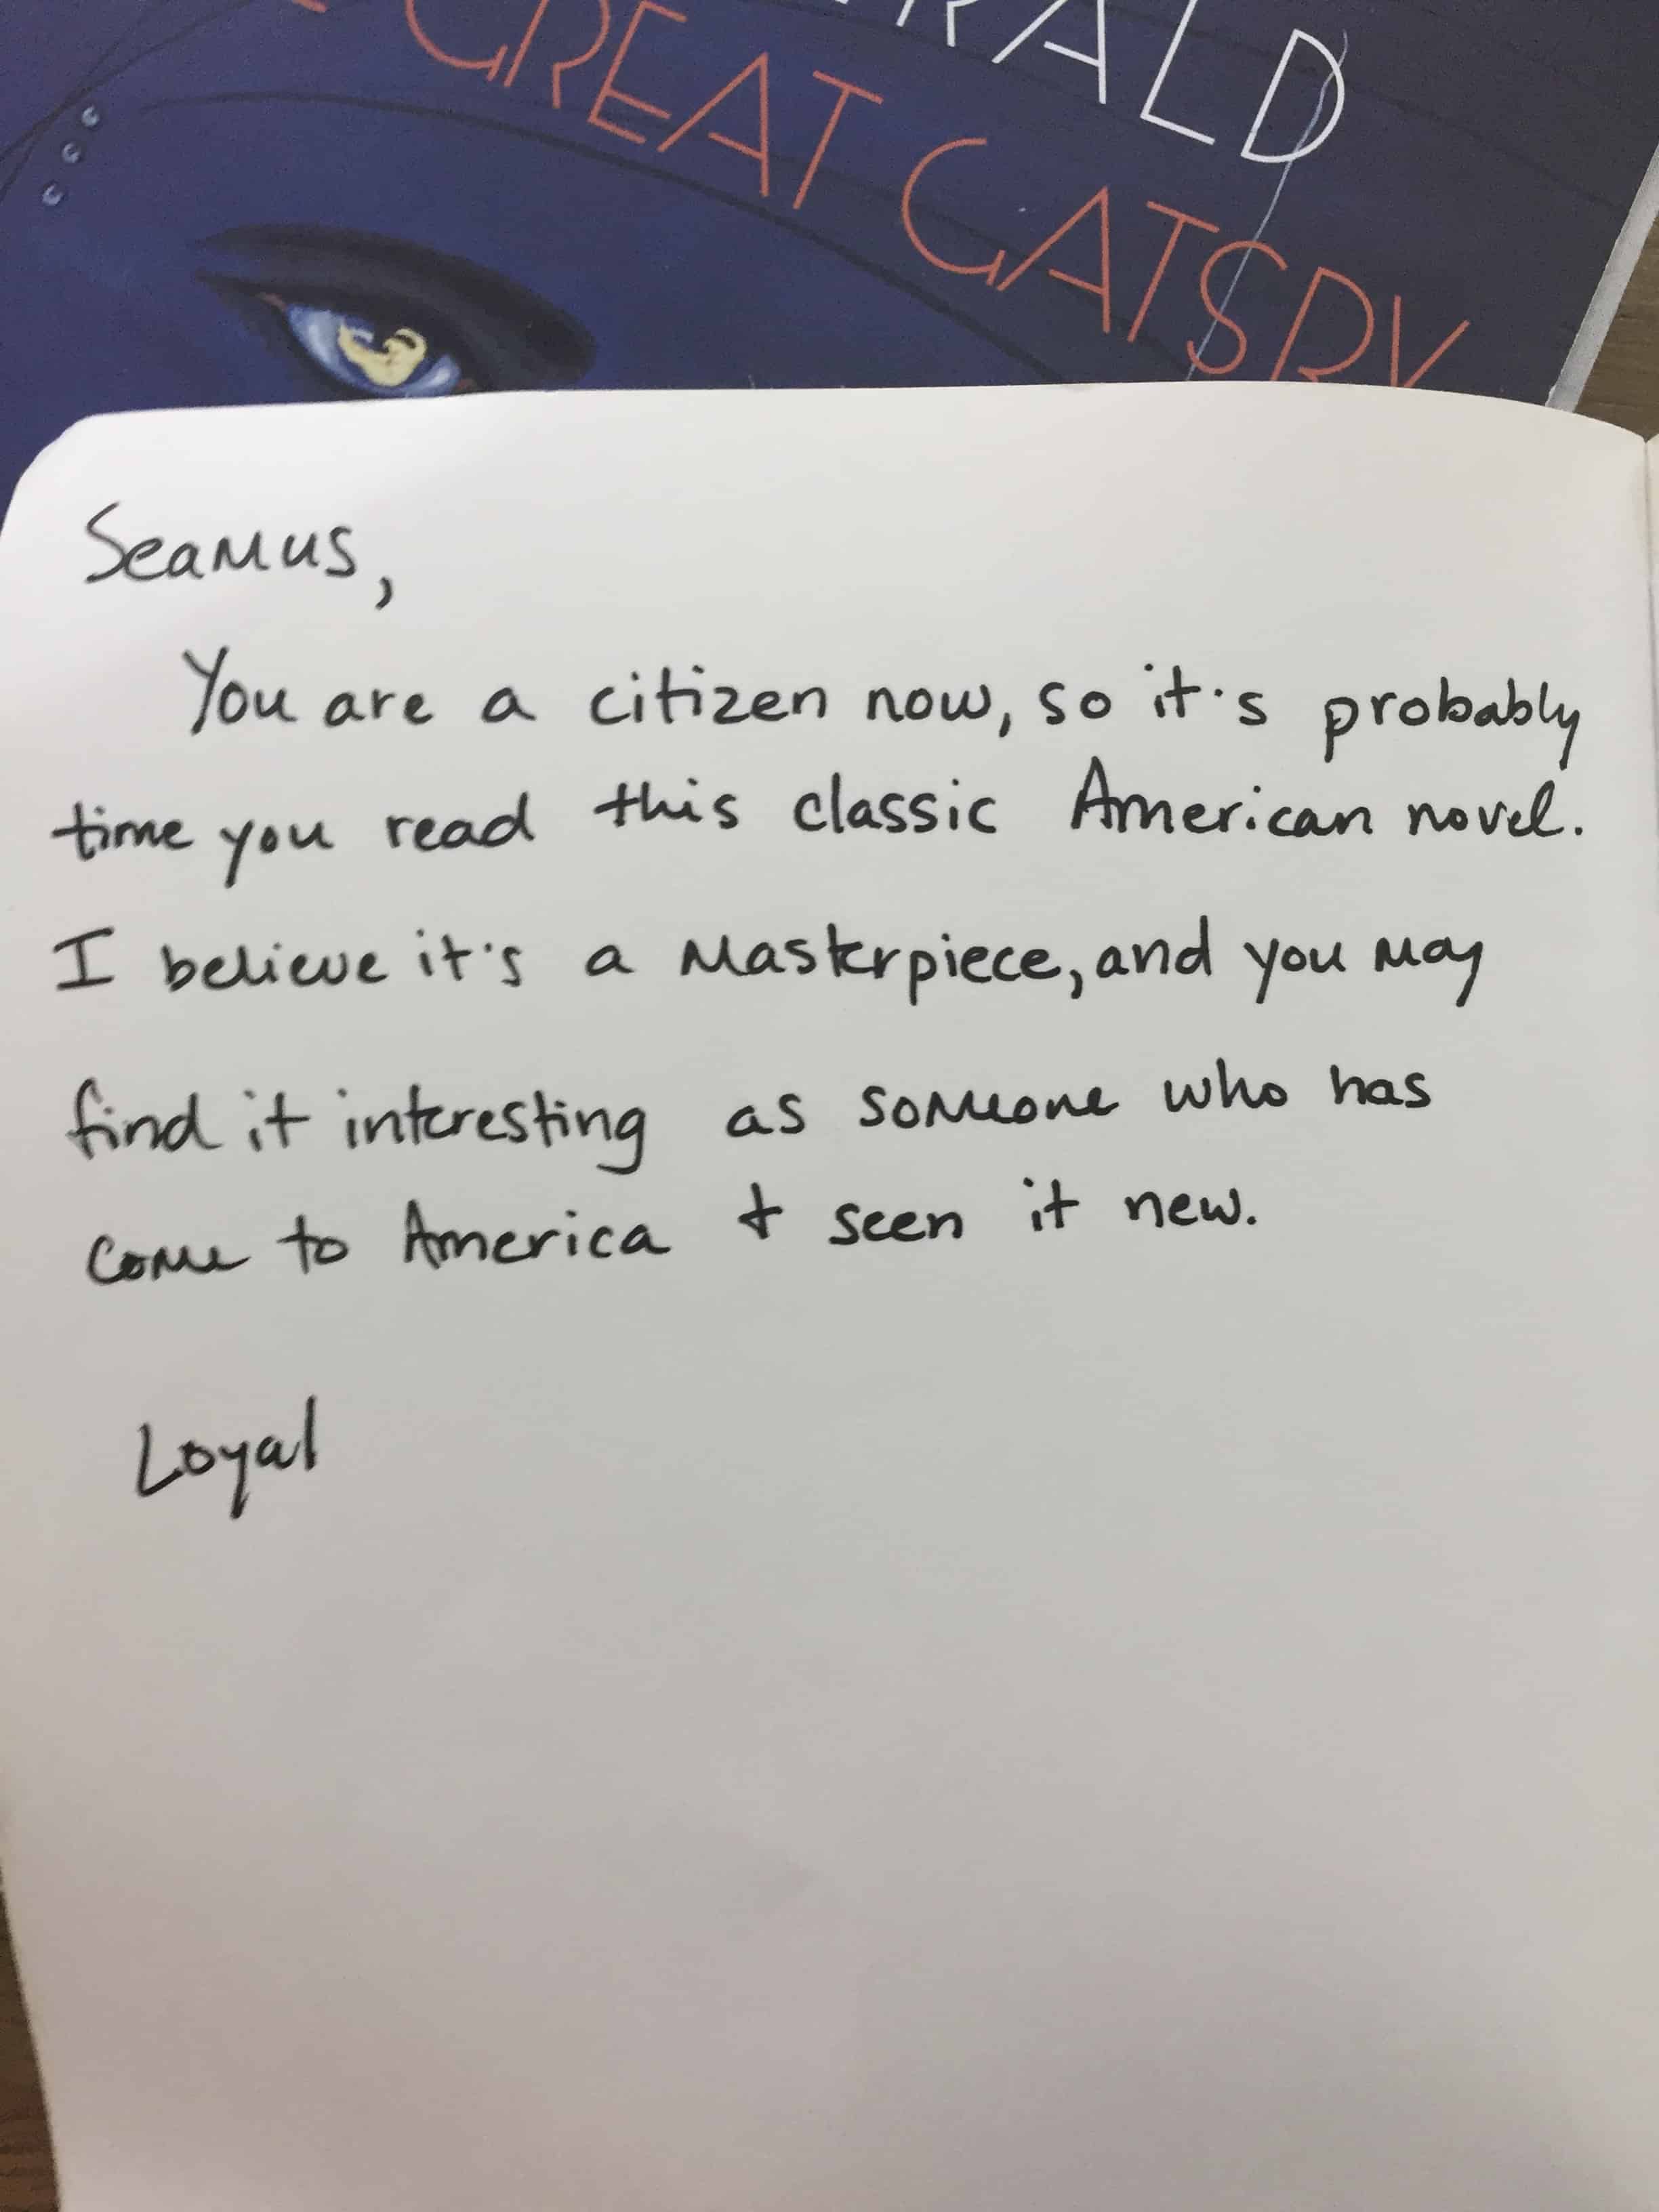 RALD
GREAT GATSBY
Seamus,
You are a citizen now, so it's probably
time you read this classic American novel.
I believe it's a masterpiece, and you may
find it interesting as someone who has
come to America + seen it new.
Loyal